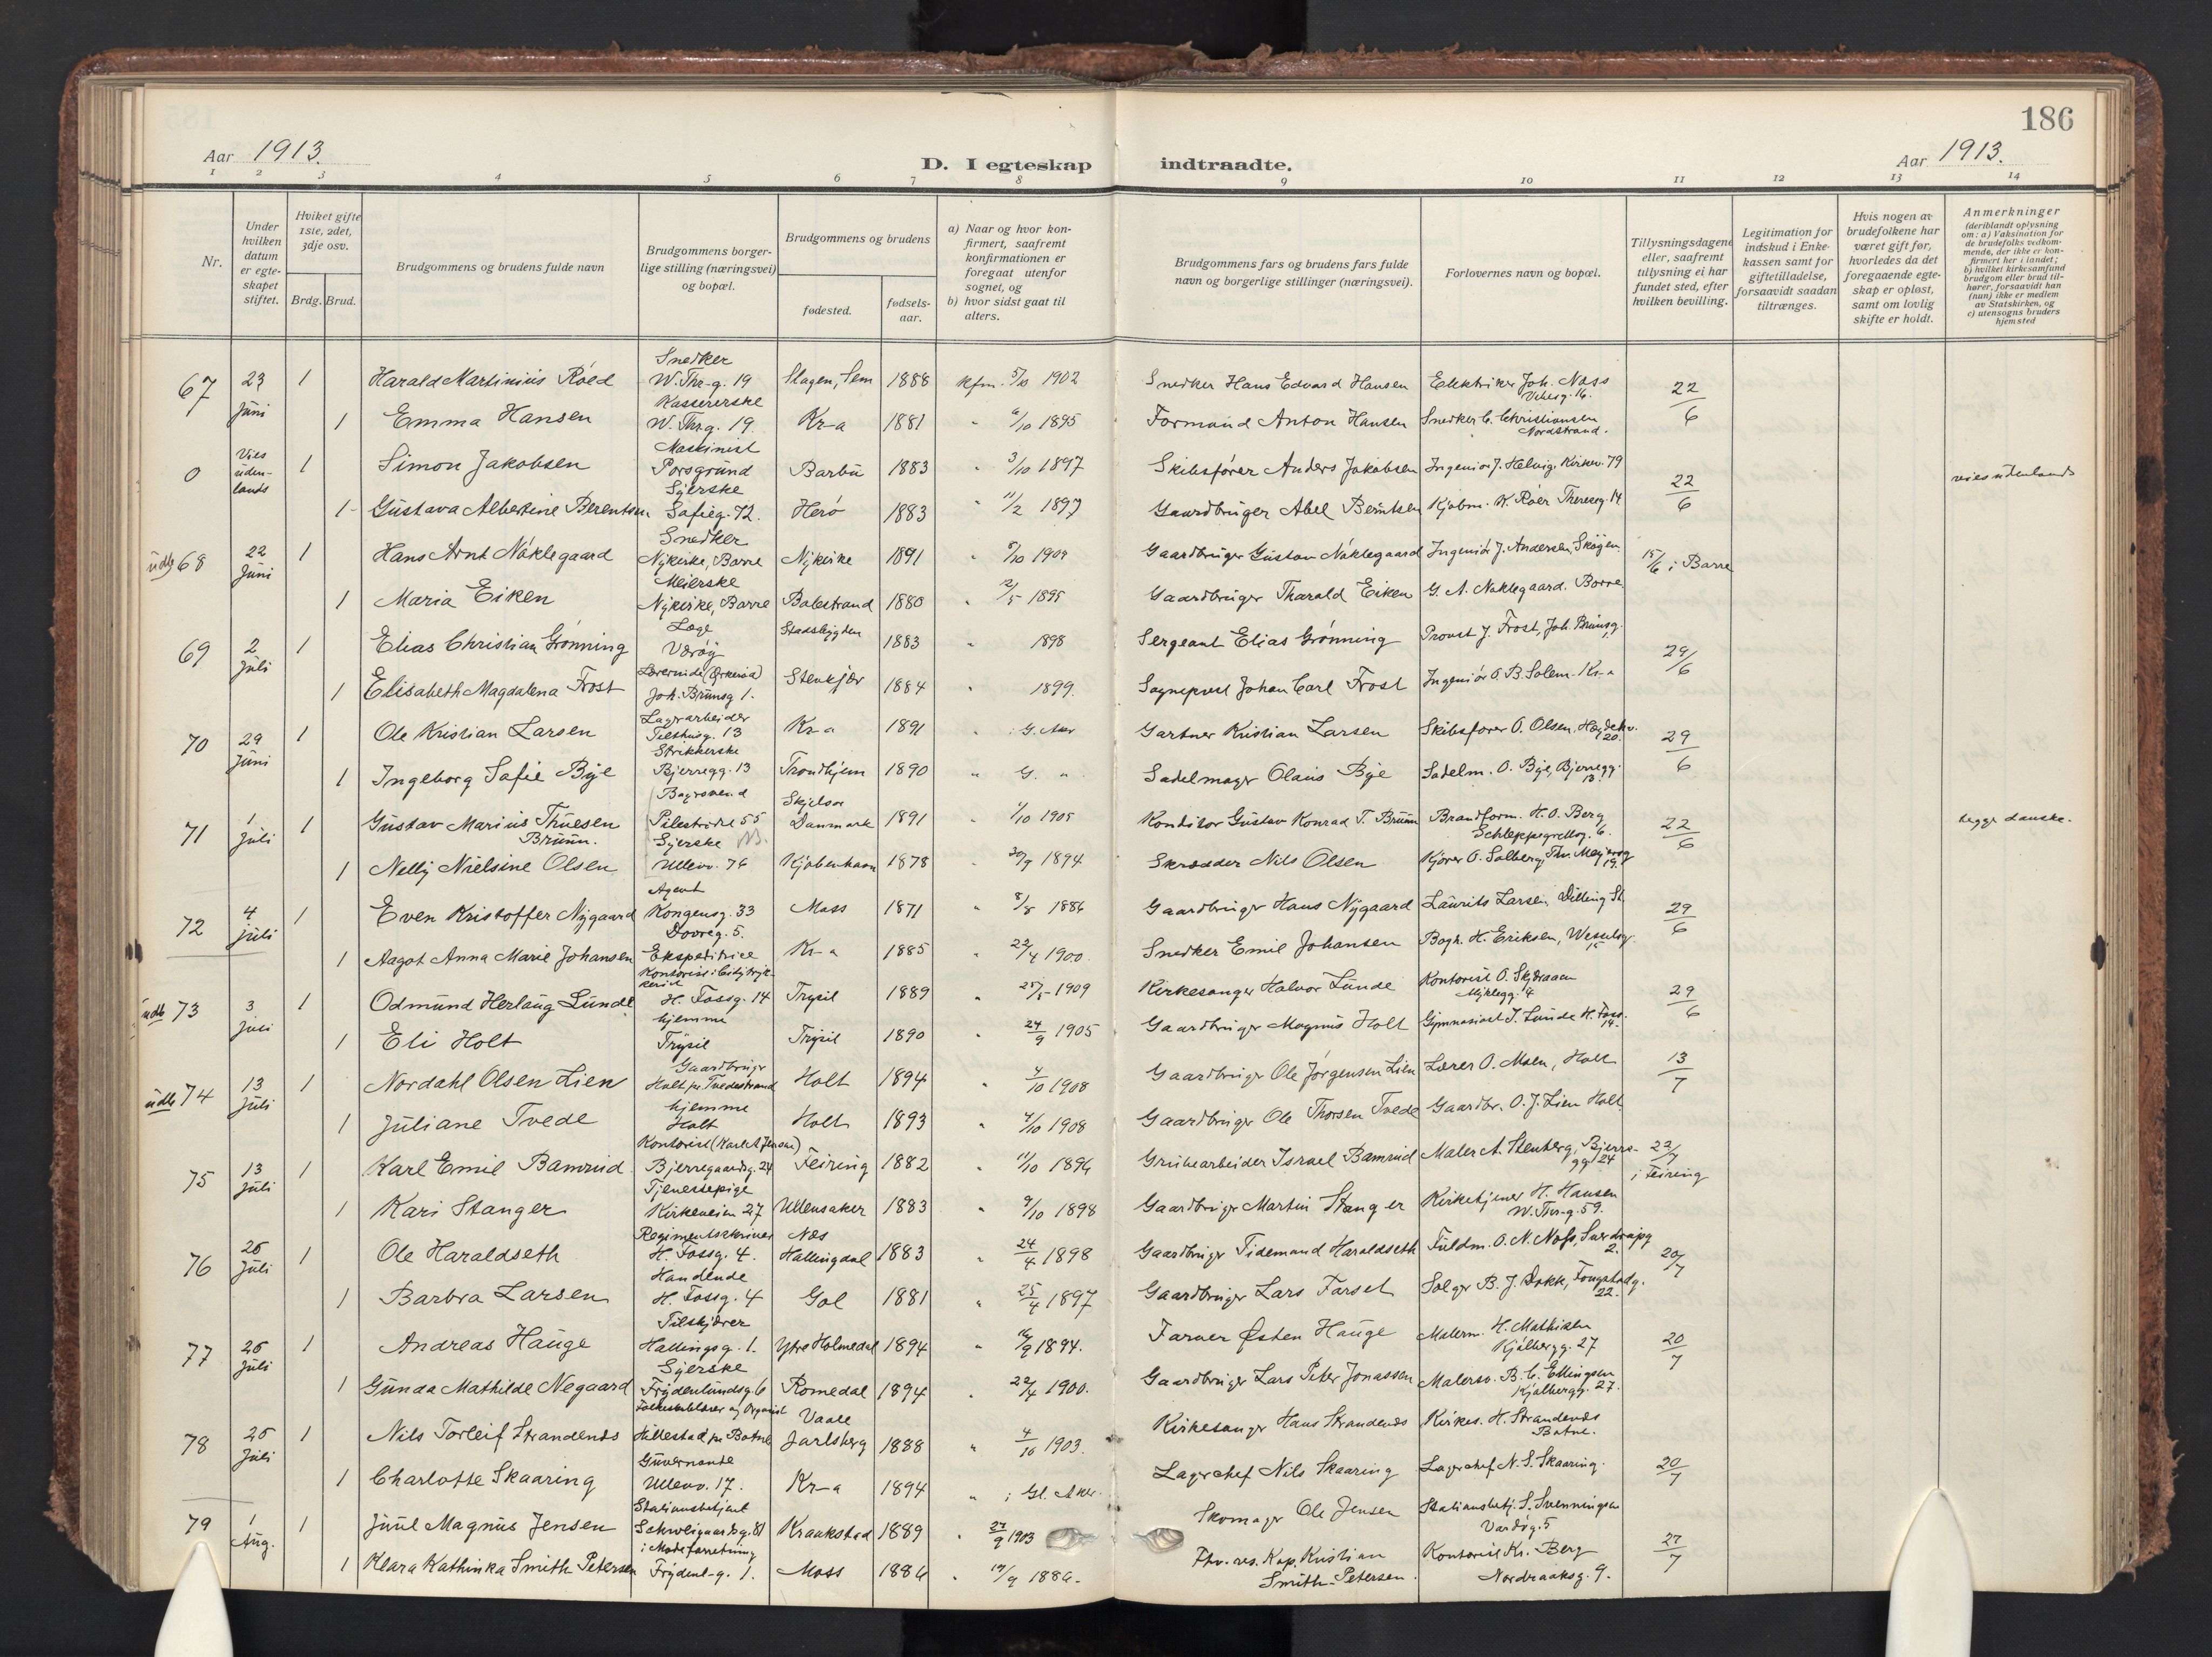 186
Aar 1913.
D. I egteskap indtraadte.
Aar 1913.
1 2 3 4 5 6 7 8 9 10 11 12 13 14
Nr.
Under hvilken datum er egteskapet stiftet.
Hviket gifte 1ste, 2det, 3dje osv.
Brdg. Brud.
Brudgommens og brudens fulde navn
Brudgommens borgerlige stilling (næringsvei) og bopæl.
Brudgommens og brudens
fødested.
fødselsaar.
a) Naar og hvor konfirmert, saafremt konfirmationen er foregaat utenfor sognet, og
b) hvor sidst gaat til alters.
Brudgommens fars og brudens fars fulde navn og borgerlige stillinger (næringsvei).
Forlovernes navn og bopæl.
Tillysningsdagene eller, saafremt tillysning ei har fundet sted, efter hvilken bevilling.
Legitimation for indskud i Enkekassen samt for giftetilladelse, forsaavidt saadan tiltrænges.
Hvis nogen av brudefolkene har været gift før, hvorledes da det foregaaende egteskap er opløst, samt om lovlig skifte er holdt.
Anmerkninger (deriblandt oplysning om: a) Vaksination for de brudefolks vedkommende, der ikke er konfirmert her i landet; b) hvilket kirkesamfund brudgom eller brud tilhører, forsaavidt han (hun) ikke er medlem av Statskirken, og c) utensogns bruders hjemsted
67 23 Juni 1 Harald Martinius Röed Snedker W. Thr-g. 19 Slagen, Sem 1888 kfm. 5/10 1902 Snedker Hans Edvard Hansen Elektriker Joh. Næss Vibesg. 16. 22/6
1 Emma Hansen Kassererske W. Thr.g. 19. Kr-a 1881 " 6/10 1895 Formand Anton Hansen Snedker C. Christiansen Nordstrand.
0 Vies udenlands 1 Simon Jakobsen Maskinist Porsgrund Barbu 1883 " 3/10 1897 Skibsfører Anders Jakobsen Ingeniør J. Helvig, Kirkev. 79 22/6 vies udenlands
1 Gustava Albertine Berentsen Syerske Sofieg. 72. Herö 1883 " 11/2 1897 Gaardbruger Abel Berntsen Kjøbm. K. Röer Thereseg. 14
udb 68 22 Juni 1 Hans Arnt Nöklegaard Snedker Nykirke, Borre Nykirke 1891 " 5/10 1909 Gaardbruger Gustav Nöklegaard Ingeniör J. Andersen, Skøyen. 15/6 i Borre
1 Maria Eiken Meierske Nykirke, Borre Balestrand 1880 " 12/5 1895 Gaardbruger Tharald Eiken G. A. Nøklegaard. Borre
69 2 Juli 1 Elias Christian Grönning Læge Værøy Stadsbygden 1883 " 1898 Sergeant Elias Grönning Provst J. Frost, Joh. Brunsg. 1. 29/6
1 Elisabeth Magdalena Frost Lærerinde Joh. Brunsg 1. Stenkjær 1884 " 1899. Sogneprest Johan Carl Frost Ingeniör O. B. Solem. Kr-a
70 29 Juni 1 Ole Kristian Larsen Lagerarbeider Telthusg. 13 Kr-a 1891 " i G. Aker Gartner Kristian Larsen Skibsfører O. Olsen, 20. 29/6
1 Ingeborg Sofie Bye Strikkerske Bjerregg. 13 Trondhjem 1890 " G. " Sadelmager Olaus Bye Sadelm. O. Bye, Bjerregg. 13.
71 1 Juli 1 Gustav Marius Thuesen Bruun. Bagersvend Pilestrædet 55 Skjelsør Danmark 1891 " 1/10 1905 Konditor Gustav Konrad T. Bruun Brandform. H. O. Berg Schleppegrellsg. 6. 22/6 begge danske.
1 Nelly Nielsine Olsen Syerske Ullevv. 76 Kjøbenhavn 1878 " 30/9 1894 Skrædder Nils Olsen Kjører O. Solberg, Thv. Meyersg 19.
72 4 Juli 1 Even Kristoffer Nygaard Agent Kongensg. 33 Moss 1871 " 8/8 1886 Gaardbruger Hans Nygaard Laurits Larsen, Dilling St. 29/6
1 Aagot Anna Marie Johansen Dovreg. 5. Ekspeditrice Kr-a 1885 " 22/4 1900. Snedker Emil Johansen Bogh. H. Eriksen, Wesselsg. 15
udb 73 3 Juli 1 Odmund Herlaug Lunde Kontorist H. Fossg. 14 Trysil 1889 " 25/5 1909 Kirkesanger Halvor Lunde Kontorist O. Skjæraaen Myklegg. 4 29/6
1 Eli Holt hjemme Trysil Trysil 1890 " 24/9 1905 Gaardbruger Magnus Holt Gymnasiast J. Lunde H. Foss. 14.
udb 74 13 Juli 1 Nordahl Olsen Lien Gaardbruger Holt pr. Tvedestrand Holt 1894 " 4/10 1908 Gaardbruger Ole Jørgensen Lien Lærer O. Moen, Holt 13/7
1 Juliane Tvede hjemme Holt Holt 1893 " 4/10 1908 Gaardbruger Ole Thorsen Tvede Gaardbr. O. J. Lien Holt
75 13 Juli 1 Karl Emil Bamrud Kontorist (Karl A Jensen) Bjerregaardsg. 24 Feiring 1882 " 11/10 1896 Grubearbeider Israel Bamrud Maler A. Stenberg, Bjerregg. 24 i Feiring
1 Kari Stanger Tjenestepige Kirkeveien 27 Ullensaker 1883 " 9/10 1898 Gaardbruger Martin Stanger Kirketjener H. Hansen W. Thr-g. 59.
76 26 Juli 1 Ole Haraldseth Regimentsskriver H. Fossg. 4. Næs Hallingdal 1883 " 24/4 1898 Gaardbruger Tidemand Haraldseth Fuldm. O. N. Næss, Sverdrupg 2. 20/7
1 Barbra Larsen Handlende H. Fossg. 4 Gol 1881 " 25/4 1897 Gaardbruger Lars Farset Selger B. J. Dokk, 22.
77 26 Juli 1 Andreas Hauge Tilskjærer Hallingsg. 1. Ytre Holmedal 1894 " 1894. Farver Østen Hauge Malerm. H. Mathisen Kjølbergg. 27 20/7
1 Gunda Mathilde Negaard Syerske Frydenlundsg. 6 Romedal 1894 " 22/4 1900. Gaardbruger Lars Peter Jonassen Malersv. B. C. Ellingsen Kjølbergg. 27.
78 26 Juli 1 Nils Torleif Strandends Folkeskolelærer og Organist Hillestad pr. Botne Vaale Jarlsberg 1888 " 4/10 1903. Kirkesanger Hans Strandends Kirkes. H. Strandends Botne. 20/7
1 Charlotte Skaaring Guvernante Ullevv. 17. Kr-a 1894 " i Gl. Aker. Lagerchef Nils Skaaring Lagerchef N. S. Skaaring.
79 1 Aug. 1 Juul Magnus Jensen Stationsbetjent Schweigaardsg. 81 Kraakstad 1889 " 27/9 1903 Skomager Ole Jensen Stationsbetj. S. Svenningsen Vardøg. 5 27/7
1 Klara Kathinka Smith Petersen i Modeforretning Frydenl-g. 1. Moss 1886 " 19/9 1886. Fhv. res. Kap. Kristian Smith-Petersen. Kontorist Kr. Berg Nordraaksg. 9.